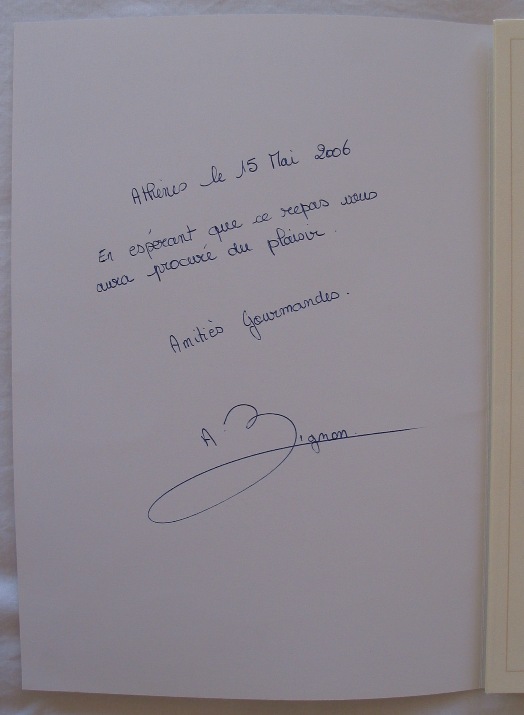 Athènes le 15 Mai 2006
En espérant que ce repas vous
aura procuré du plaisir.
Amitiès Gourmandes.
A. Bignon.